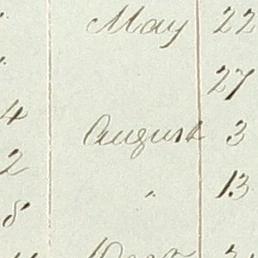 May 22
27
4 August 3
2 " 13
8